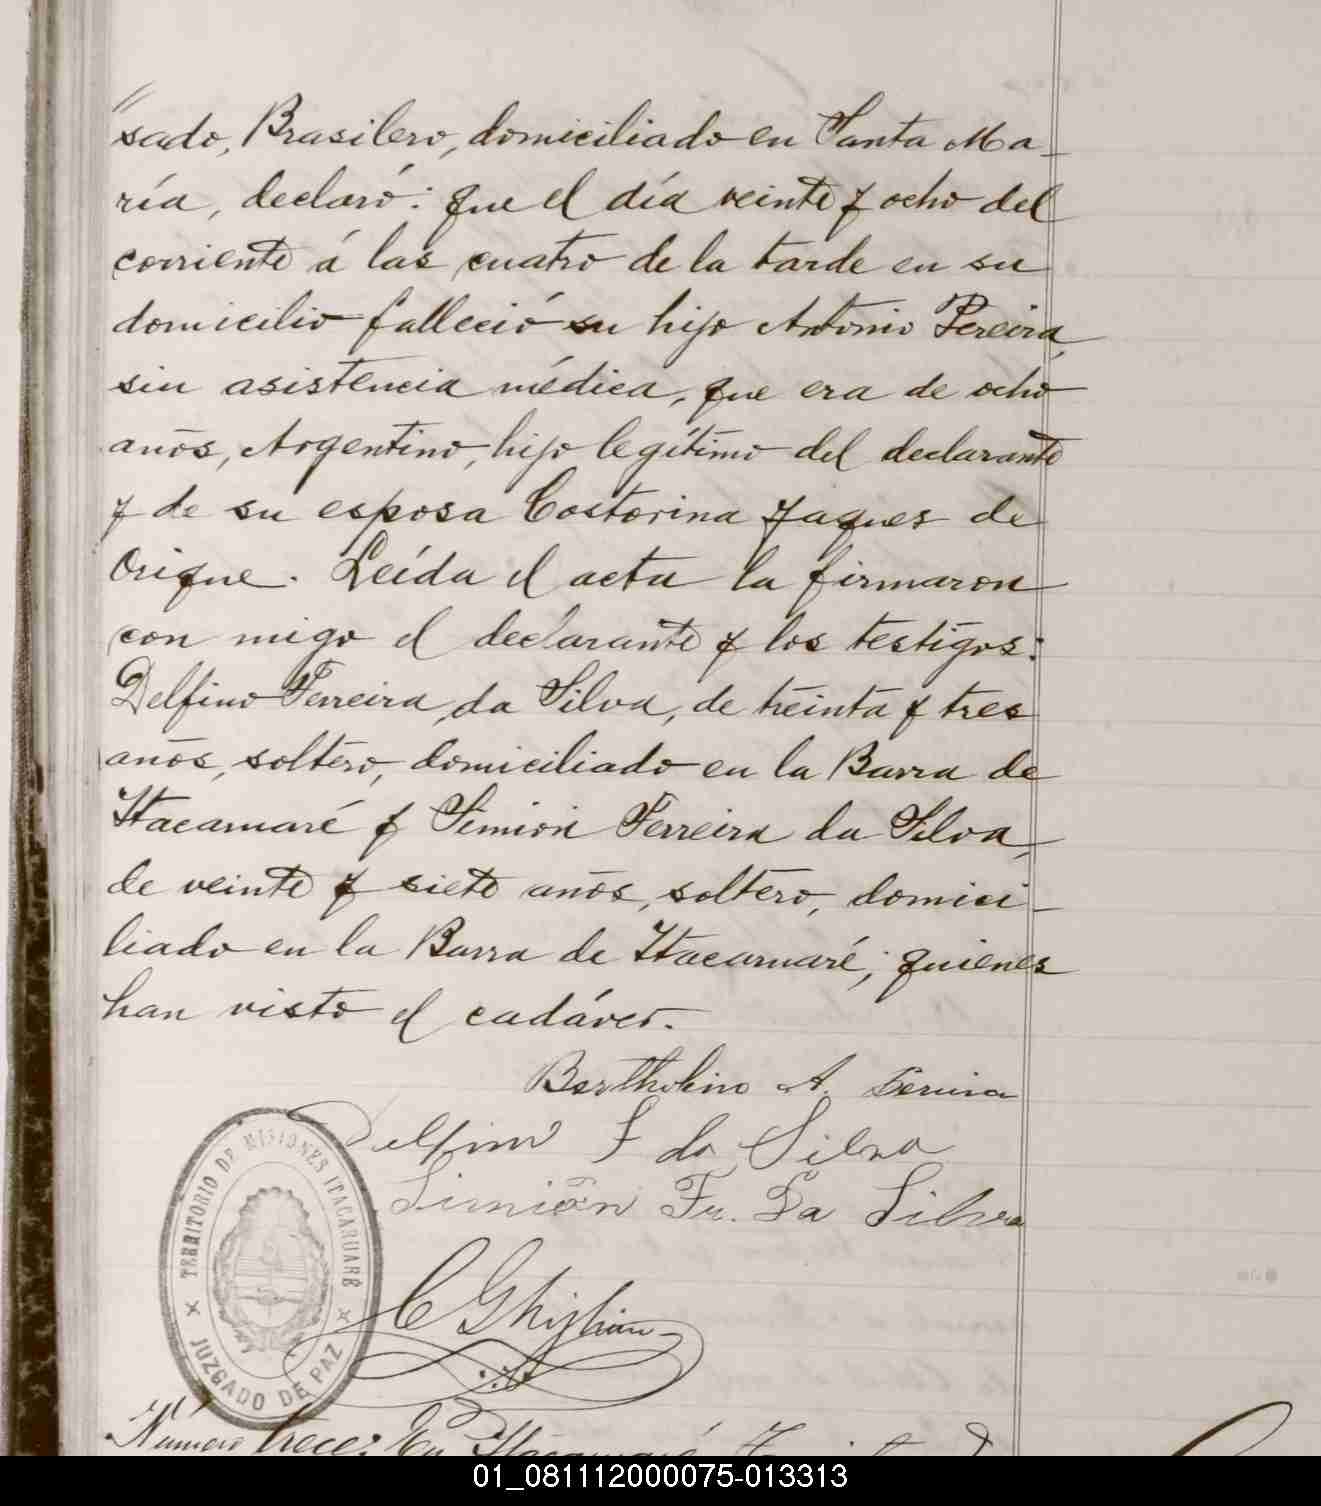 "
sado, Brasilero, domiciliado en Santa Ma-
ría, declaró: que el día veinte y ocho del
corriente á las cuatro de la tarde en su
domicilio falleció su hijo Antonio Pereira,
sin asistencia médica, que era de ocho
años, Argentino, hijo legítimo del declarante
y de su esposa Costorina Jaques de
Orique. Leída el acta la firmaron
con migo el declarante y los testigos:
Delfino Ferreira da Silva, de treinta y tres
años, soltero, domiciliado en la Barra de
Itacaruaré y Simión Ferreira da Silva,
de veinte y siete años, soltero, domici-
liado en la Barra de Itacaruaré; quienes
han visto el cadáver.
Bertholino A. Pereira
Delfino F da Silva
Simión Fr. Da Silva
TERRITORIO DE MISIONES ITACARUARÉ
JUZGADO DE PAZ
C Ghiglian
Número trece: En Itacaruaré
01_081112000075-013313